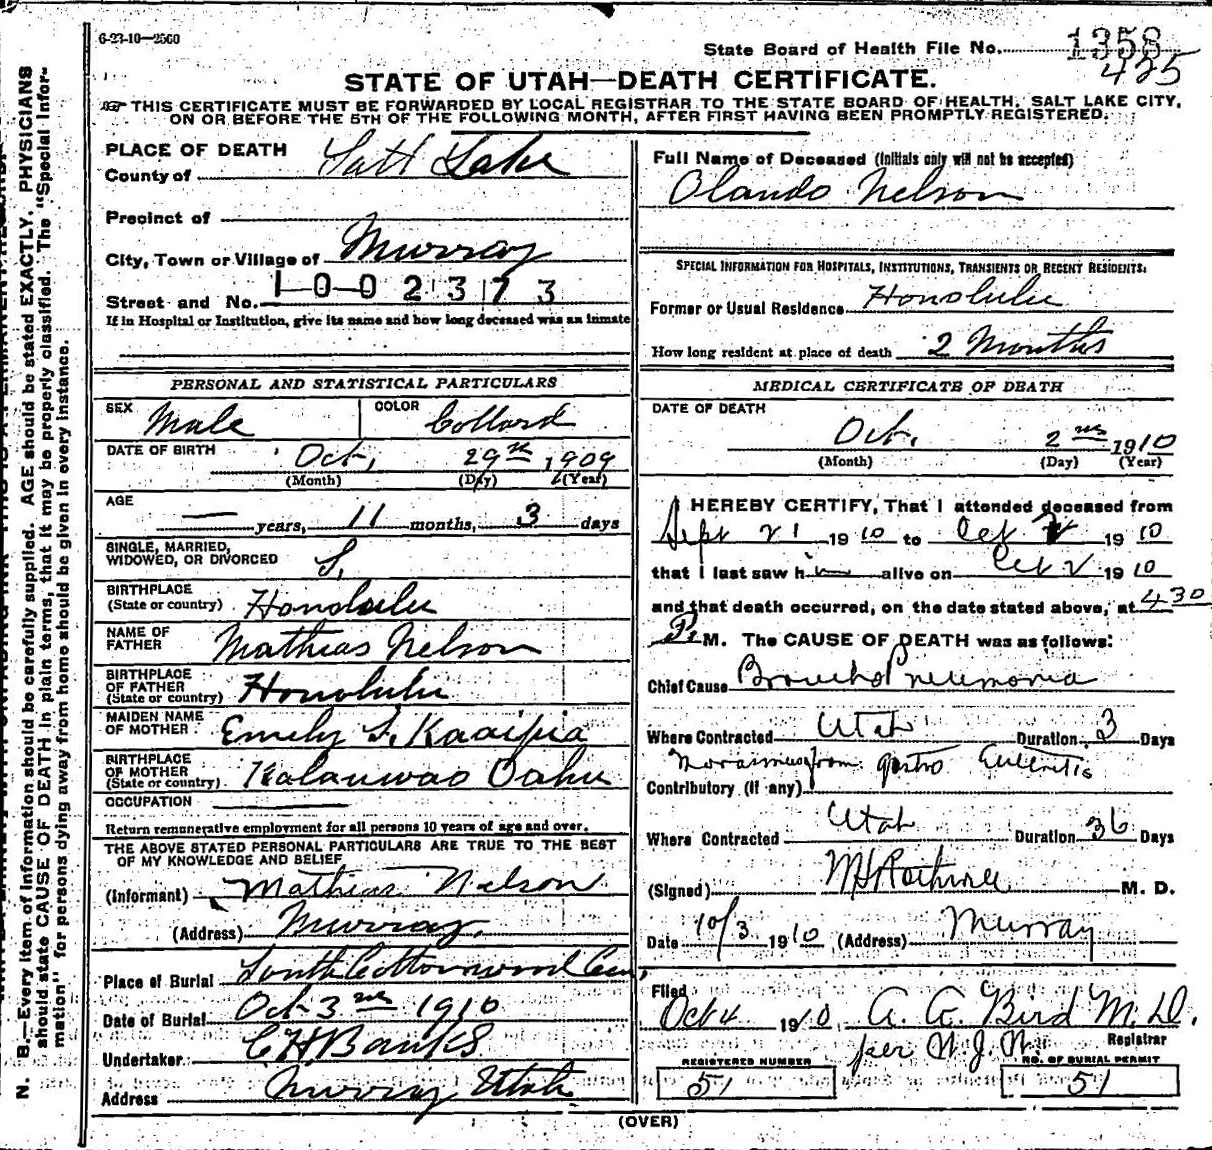 6-23-10—2500
State Board of Health File No. 1358
425
STATE OF UTAH—DEATH CERTIFICATE.
THIS CERTIFICATE MUST BE FORWARDED BY LOCAL REGISTRAR TO THE STATE BOARD OF HEALTH, SALT LAKE CITY,
ON OR BEFORE THE 5TH OF THE FOLLOWING MONTH, AFTER FIRST HAVING BEEN PROMPTLY REGISTERED.
N. B.—Every item of information should be carefully supplied. AGE should be stated EXACTLY. PHYSICIANS
should state CAUSE OF DEATH in plain terms, that it may be properly classified. The "Special Infor-
mation" for persons dying away from home should be given in every instance.
PLACE OF DEATH
County of Salt Lake
Precinct of
City, Town or Village of Murray
Street and No. 1002373
If in Hospital or Institution, give its name and how long deceased was an inmate
PERSONAL AND STATISTICAL PARTICULARS
SEX Male COLOR Collard
DATE OF BIRTH Oct. 29th 1909
(Month) (Day) (Year)
AGE
— years, 11 months, 3 days
SINGLE, MARRIED,
WIDOWED, OR DIVORCED S.
BIRTHPLACE
(State or country) Honolulu
NAME OF
FATHER Mathias Nelson
BIRTHPLACE
OF FATHER
(State or country) Honolulu
MAIDEN NAME
OF MOTHER Emely S. Kaaipia
BIRTHPLACE
OF MOTHER
(State or country) Kalauwao Oahu
OCCUPATION
Return remunerative employment for all persons 10 years of age and over.
THE ABOVE STATED PERSONAL PARTICULARS ARE TRUE TO THE BEST
OF MY KNOWLEDGE AND BELIEF
(Informant) Mathias Nelson
(Address) Murray.
Place of Burial South Cottonwood Cem.
Date of Burial Oct 3rd 1910
Undertaker C H Banks
Address Murray Utah
Full Name of Deceased (Initials only will not be accepted)
Olando Nelson
SPECIAL INFORMATION FOR HOSPITALS, INSTITUTIONS, TRANSIENTS OR RECENT RESIDENTS.
Former or Usual Residence Honolulu
How long resident at place of death 2 Months
MEDICAL CERTIFICATE OF DEATH
DATE OF DEATH
Oct. 2nd 1910
(Month) (Day) (Year)
I HEREBY CERTIFY, That I attended deceased from
Sept 21 1910 to Oct 2 1910
that I last saw him alive on Oct 2 1910
and that death occurred, on the date stated above, at 430
P. M. The CAUSE OF DEATH was as follows:
Chief Cause Broncho Pneumonia
Where Contracted Utah Duration 3 Days
Marasmus from gastro Enteritis
Contributory (if any)
Where Contracted Utah Duration 36 Days
(Signed) M. D.
Date 10/3 1910 (Address) Murray
Filed
Oct 4 1910 A. G. Bird M. D.
Registrar
per N. J. N.
REGISTERED NUMBER
51
NO. OF BURIAL PERMIT
51
(OVER)